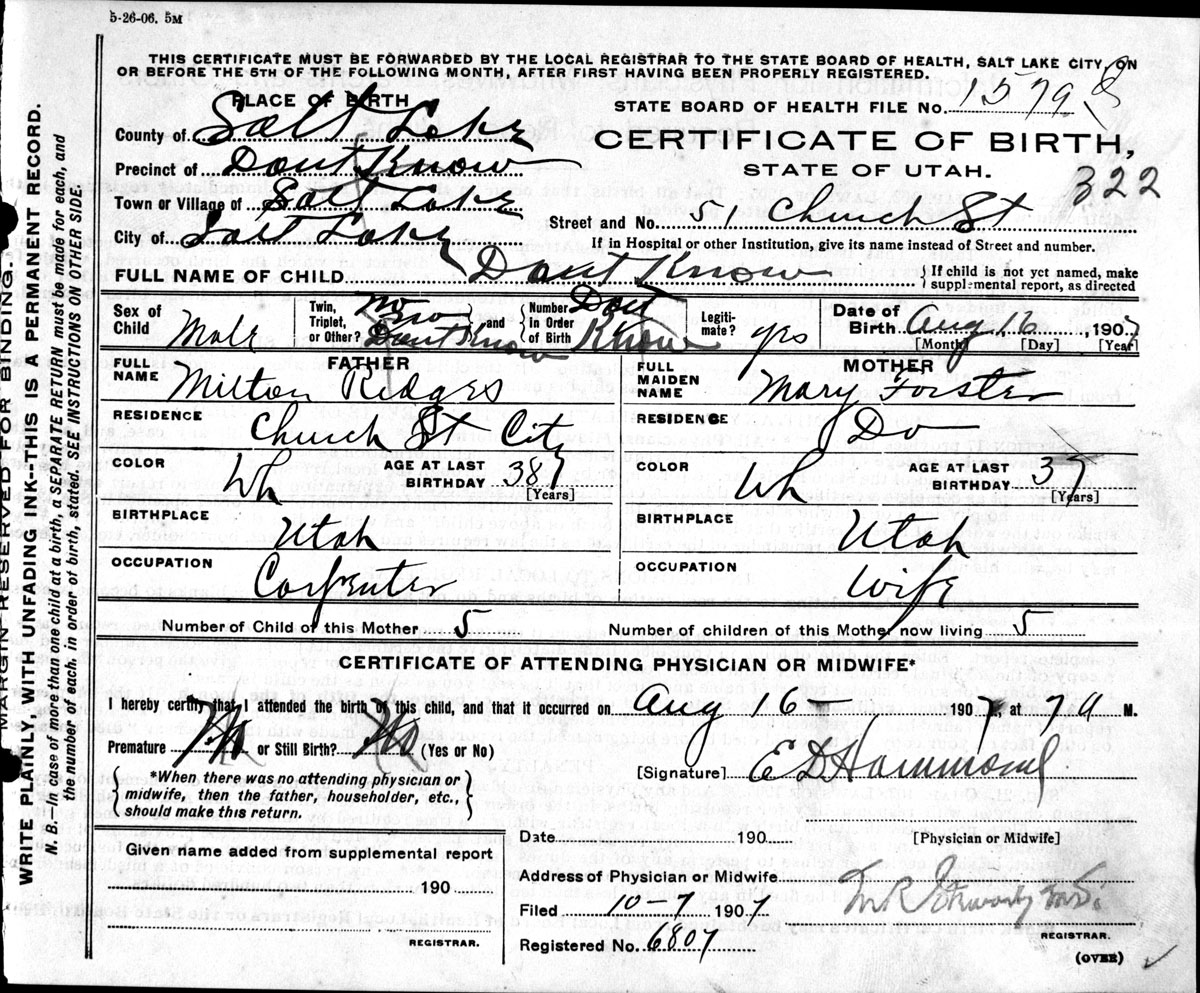 5-26-06. 5M
THIS CERTIFICATE MUST BE FORWARDED BY THE LOCAL REGISTRAR TO THE STATE BOARD OF HEALTH, SALT LAKE CITY, ON
OR BEFORE THE 5TH OF THE FOLLOWING MONTH, AFTER FIRST HAVING BEEN PROPERLY REGISTERED.
PLACE OF BIRTH
STATE BOARD OF HEALTH FILE No. 1579
County of Salt Lake
CERTIFICATE OF BIRTH,
Precinct of Dont Know
STATE OF UTAH.
322
Town or Village of Salt Lake
Street and No. 51 Church St
City of Salt Lake
If in Hospital or other Institution, give its name instead of Street and number.
FULL NAME OF CHILD Dont Know
If child is not yet named, make
supplemental report, as directed
Sex of Child Male
Twin, Triplet, or Other? No Dont Know
and
Number in Order of Birth Dont Know
Legiti- mate? yes
Date of Birth Aug 16, 1907
[Month] [Day] [Year]
FATHER
FULL NAME Milton Ridges
MOTHER
FULL MAIDEN NAME Mary Forster
RESIDENCE Church St City
RESIDENCE Do
COLOR Wh
AGE AT LAST BIRTHDAY 38
[Years]
COLOR Wh
AGE AT LAST BIRTHDAY 37
[Years]
BIRTHPLACE Utah
BIRTHPLACE Utah
OCCUPATION Carpenter
OCCUPATION Wife
Number of Child of this Mother 5
Number of children of this Mother now living 5
CERTIFICATE OF ATTENDING PHYSICIAN OR MIDWIFE*
I hereby certify that I attended the birth of this child, and that it occurred on Aug 16 1907, at 7 a M.
Premature No or Still Birth? No (Yes or No)
*When there was no attending physician or
midwife, then the father, householder, etc.,
should make this return.
[Signature] E D Hammond
Date 190
[Physician or Midwife]
Given name added from supplemental report
190
REGISTRAR.
Address of Physician or Midwife
Filed 10-7 1907
M.D.
Registered No. 6807
REGISTRAR.
(OVER)
MARGIN RESERVED FOR BINDING.
WRITE PLAINLY, WITH UNFADING INK--THIS IS A PERMANENT RECORD.
N. B.—In case of more than one child at a birth, a SEPARATE RETURN must be made for each, and
the number of each, in order of birth, stated. SEE INSTRUCTIONS ON OTHER SIDE.